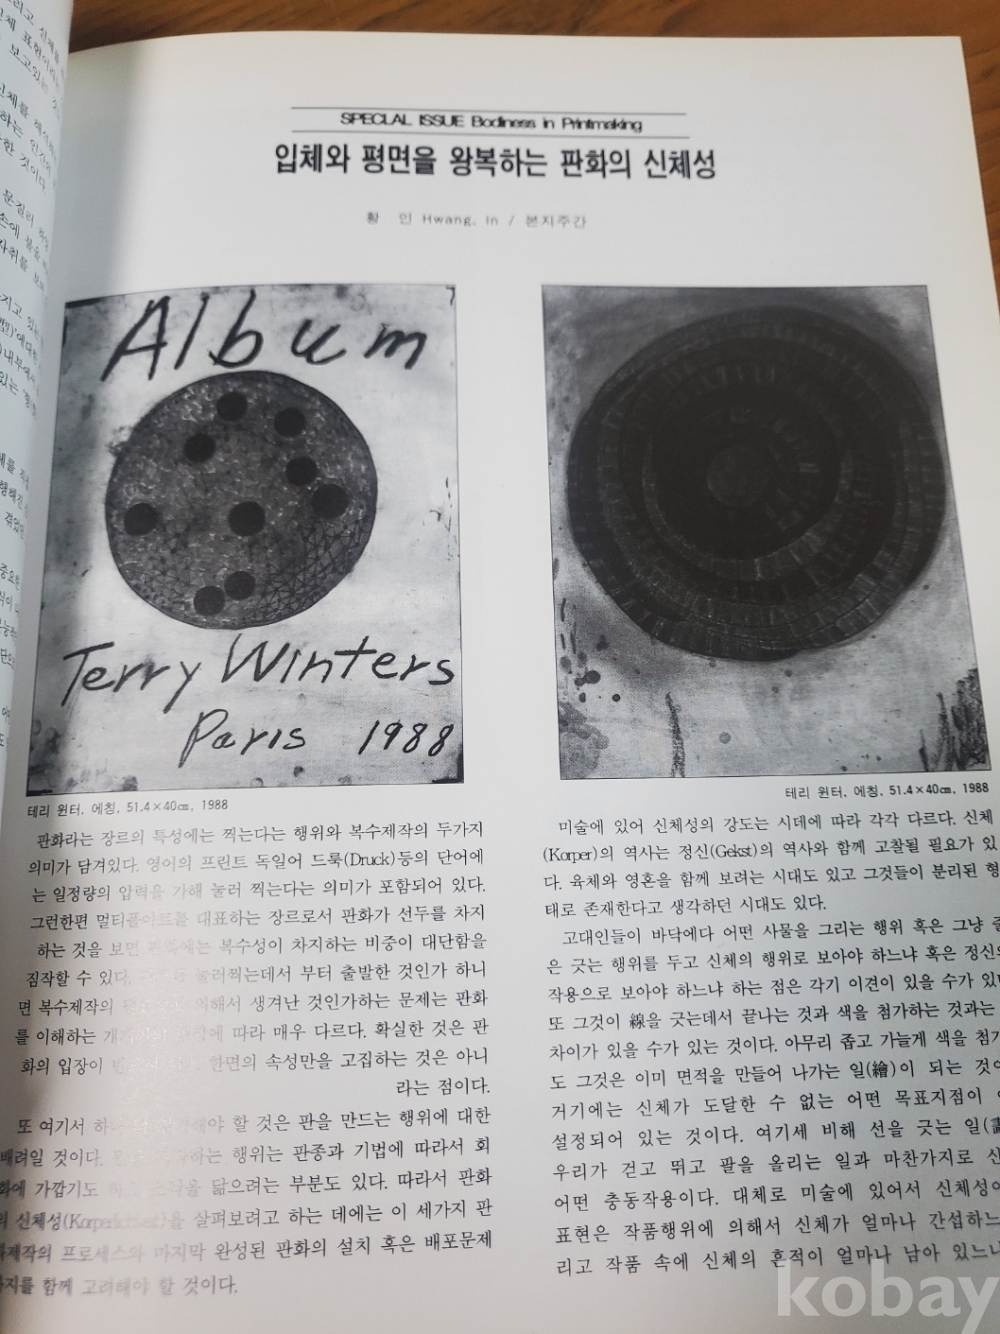 SPECLAL ISSUE Bodiness in Printmaking
입체와 평면을 왕복하는 판화의 신체성
황 인 Hwang, In / 본지주간
Album
Terry Winters
Paris 1988
테리 윈터, 에칭, 51.4×40㎝, 1988
테리 윈터, 에칭, 51.4×40㎝, 1988
판화라는 장르의 특성에는 찍는다는 행위와 복수제작의 두가지
의미가 담겨있다. 영어의 프린트 독일어 드룩(Druck)등의 단어에
는 일정량의 압력을 가해 눌러 찍는다는 의미가 포함되어 있다.
그런한편 멀티플아트를 대표하는 장르로서 판화가 선두를 차지
하는 것을 보면 복수성이 차지하는 비중이 대단함을
짐작할 수 있다. 눌러찍는데서 부터 출발한 것인가 하니
면 복수제작의 의해서 생겨난 것인가하는 문제는 판화
를 이해하는 따라 매우 다르다. 확실한 것은 판
화의 입장이 한면의 속성만을 고집하는 것은 아니
라는 점이다.
또 여기서 해야 할 것은 판을 만드는 행위에 대한
배려일 것이다. 행위는 판종과 기법에 따라서 회
화에 가깝기도 하고 조각을 닮으려는 부분도 있다. 따라서 판화
의 신체성(Korperlichkeit)을 살펴보려고 하는 데에는 이 세가지 판
제작의 프로세스와 마지막 완성된 판화의 설치 혹은 배포문제
까지를 함께 고려해야 할 것이다.
미술에 있어 신체성의 강도는 시데에 따라 각각 다르다. 신체
(Korper)의 역사는 정신(Gekst)의 역사와 함께 고찰될 필요가 있
다. 육체와 영혼을 함께 보려는 시대도 있고 그것들이 분리된 형
태로 존재한다고 생각하던 시대도 있다.
고대인들이 바닥에다 어떤 사물을 그리는 행위 혹은 그냥
은 긋는 행위를 두고 신체의 행위로 보아야 하느냐 혹은 정신의
작용으로 보아야 하느냐 하는 점은 각기 이견이 있을 수가 있다
또 그것이 線을 긋는데서 끝나는 것과 색을 첨가하는 것과는
차이가 있을 수가 있는 것이다. 아무리 좁고 가늘게 색을 첨가
도 그것은 이미 면적을 만들어 나가는 일(繪)이 되는 것이
거기에는 신체가 도달한 수 없는 어떤 목표지점이
설정되어 있는 것이다. 여기세 비해 선을 긋는 일
우리가 걷고 뛰고 팔을 올리는 일과 마찬가지로 신
어떤 충동작용이다. 대체로 미술에 있어서 신체성이
표현은 작품행위에 의해서 신체가 얼마나 간섭하느
리고 작품 속에 신체의 흔적이 얼마나 남아 있느냐
kobay